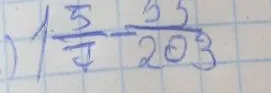 ) 1 5/7 - 55/203